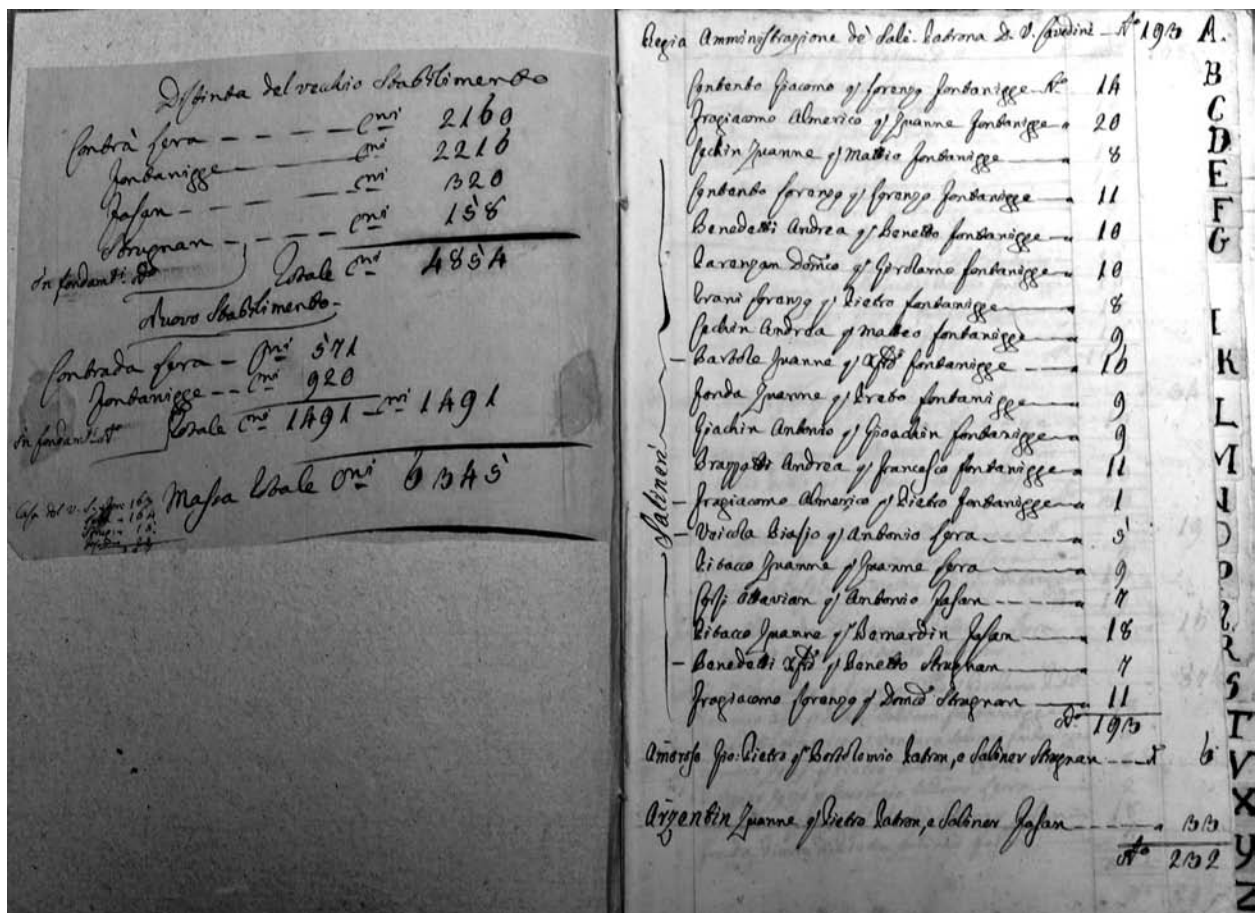 Distinta del vecchio Stabilimento
Contrà Lera - - - - - Cni 2160
Fontanigge Cni 2216
Fasan - - - - Cni 320
Strugnan - - - - Cni 158
in fondamti No Totale Cni 4854
Nuovo Stabilimento.
Contrada Lera - Cni 571
Fontanigge - - Cni 920
in fondamti No Totale Cni 1491 - Cni 1491
Massa Totale Cni 6345
Regia Amministrazione de Sali. Patrona D. V. Savedini - No 193
Contento Giacomo q Lorenzo Fontanigge - No 14
Fragiacomo Almerico q Zuanne Fontanigge 20
Zechin Zuanne q Mattio Fontanigge 8
Contento Lorenzo q Lorenzo Fontanigge 11
Benedetti Andrea q Benetto Fontanigge 10
Parenzan Domco q Girolamo Fontanigge 10
Trani Lorenzo q Pietro Fontanigge 8
Zechin Andrea q Matteo Fontanigge 9
- Bartole Zuanne q Xfo Fontanigge 16
Fonda Zuanne q Fontanigge 9
Giachin Antonio q Gioachin Fontanigge 9
Brazzatti Andrea q Francesco Fontanigge 11
- Fragiacomo Almerico q Pietro Fontanigge 1
- Voicola Biasio q Antonio Lera 5
Ribacco Zuanne q Zuanne Lera 9
Ottavian q Antonio Fasan - - - 7
Ribacco Zuanne q Bernardin Fasan 18
- Benedetti Xfo q Benetto Strugnan 7
Fragiacomo Lorenzo q Domco Strugnan 11
No 193
Salineri
Ambroso Gio: Pietro q Bortolomio Patron, e Saliner Strugnan 6
Argentin Zuanne q Pietro Patron, e Saliner Fasan 33
No 232
A.
B
C
D
E
F
G
I
K
L
M
N
O
P
Q
R
S
T
V
X
Y
Z